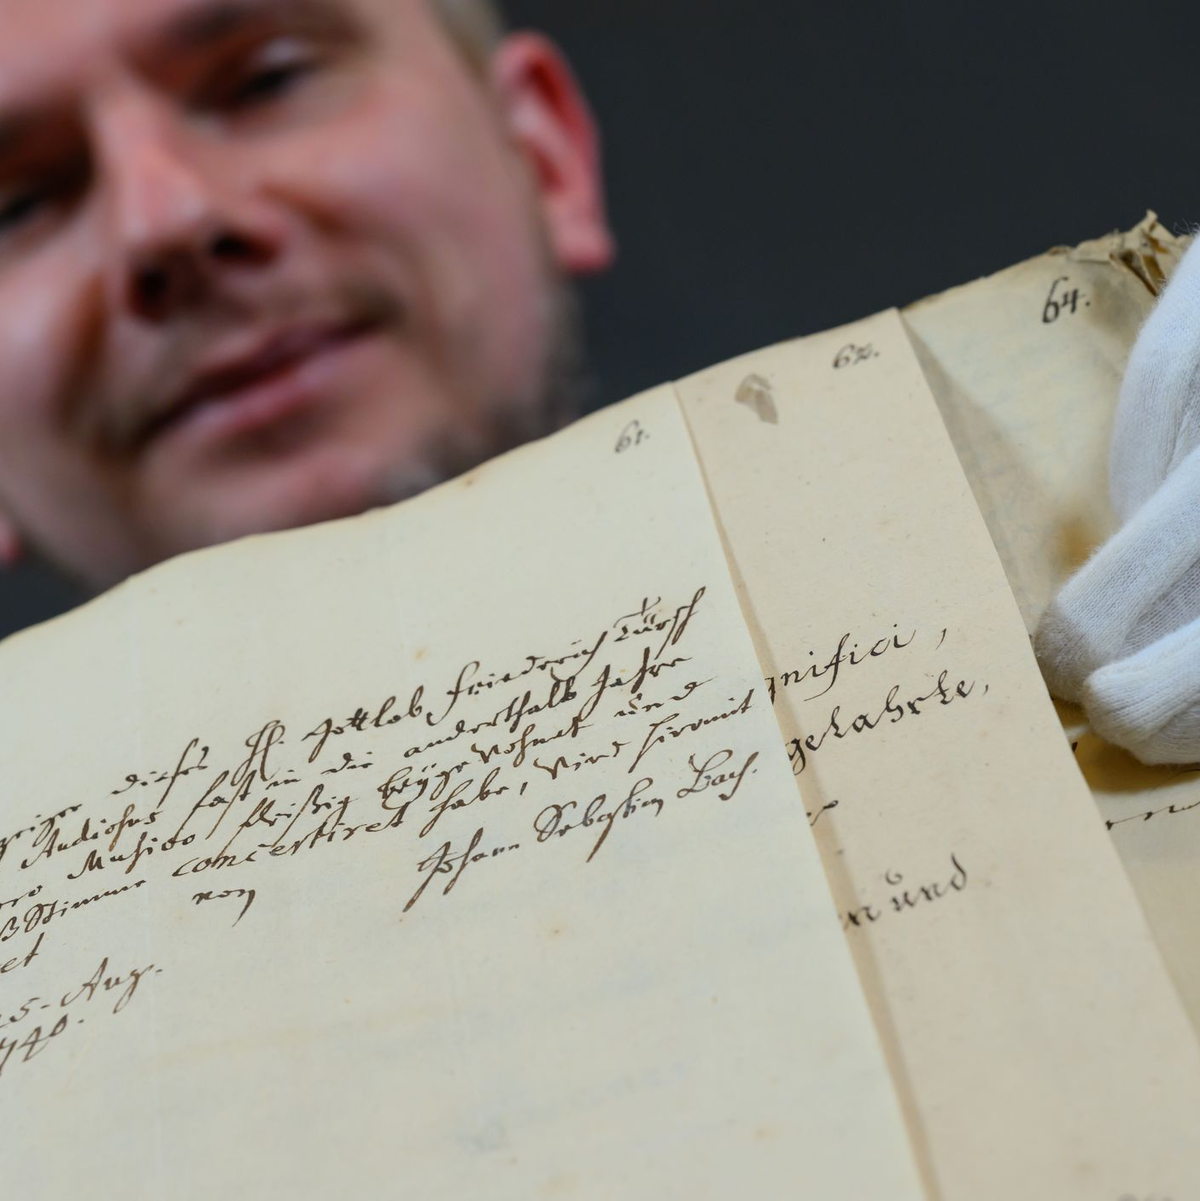 61.
dieses H. Gottlob Friedrich Türsch
Audiosus fast in die anderthalb Jahre
Musico fleißig beygewohnet und
Stimme concertiret habe, wird hiermit
et
von
Johann Sebastian Bach.
25. Aug.
1740.
62.
gnifici,
gelahrte,
en und
64.